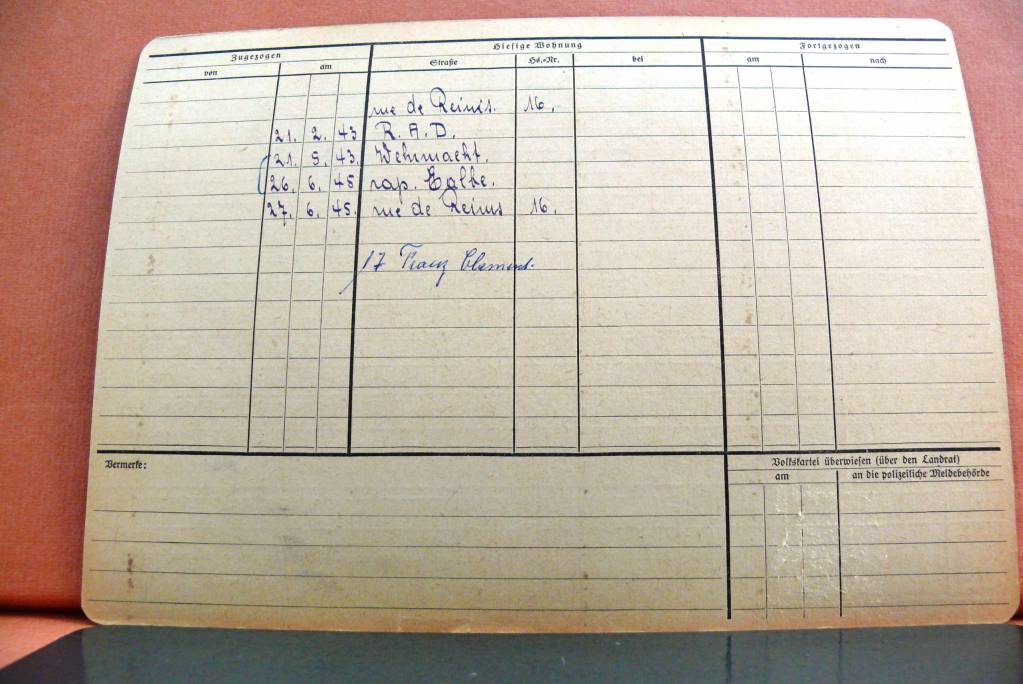 Zugezogen Hiesige Wohnung Fortgezogen
von am Straße Hs.-Nr. bei am nach
rue de Reims. 16.
21. 2. 43 R. A. D.
21. 5. 43. Wehrmacht.
26. 6. 45 rap.
27. 6. 45. rue de Reims 16.
17 Franz Clement.
Vermerke: Volkskartei überwiesen (über den Landrat)
am an die polizeiliche Meldebehörde